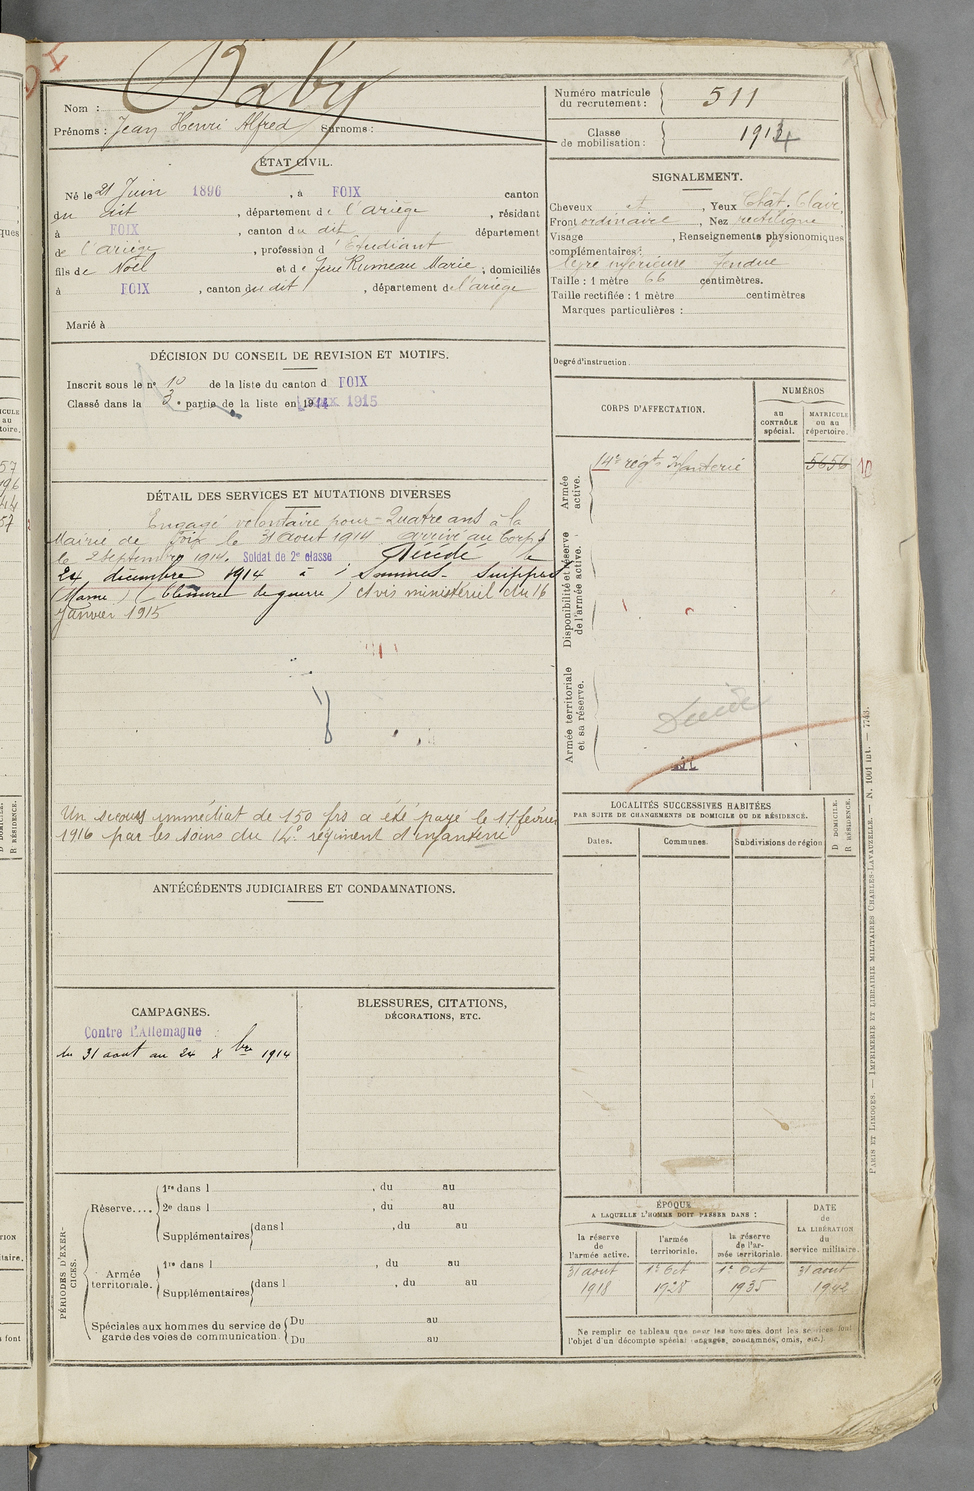 Baby
Nom :
Prénoms : Jean Henri Alfred Surnoms :
Numéro matricule du recrutement : 511
Classe de mobilisation : 1914
ÉTAT CIVIL.
Né le 21 Juin 1896, à FOIX canton
du dit, département de l'ariège, résidant
à FOIX, canton du dit département
de l'ariège, profession d'Étudiant
fils de Noël et de feue Rumeau Marie, domiciliés
à FOIX, canton du dit, département de l'ariège
Marié à
SIGNALEMENT.
Cheveux et, Yeux Chât. Clair
Front ordinaire, Nez rectiligne
Visage, Renseignements physionomiques
complémentaires :
lèvre inférieure fendue
Taille : 1 mètre 66 centimètres.
Taille rectifiée : 1 mètre centimètres
Marques particulières :
Degré d'instruction.
DÉCISION DU CONSEIL DE REVISION ET MOTIFS.
Inscrit sous le n° 10 de la liste du canton d FOIX
Classé dans la 3e partie de la liste en 1915
DÉTAIL DES SERVICES ET MUTATIONS DIVERSES
Engagé volontaire pour Quatre ans à la
Mairie de Foix le 31 aout 1914. arrivé au Corps
le 2 septembre 1914. Soldat de 2e classe Décédé le
24 décembre 1914 à Suippes
(Marne) (blessures de guerre) Avis ministériel du 16
Janvier 1915
Un secours immédiat de 150 frs a été payé le 11 février
1916 par les soins du 14e régiment d'infanterie
CORPS D'AFFECTATION.
NUMÉROS
au CONTRÔLE spécial.
MATRICULE ou au répertoire.
Armée active.
14e régt Infanterie
5656
10
Disponibilité et réserve de l'armée active.
Armée territoriale et sa réserve.
Décédé
LOCALITÉS SUCCESSIVES HABITÉES
PAR SUITE DE CHANGEMENTS DE DOMICILE OU DE RÉSIDENCE.
Dates.
Communes.
Subdivisions de région
D DOMICILE.
R RÉSIDENCE.
ANTÉCÉDENTS JUDICIAIRES ET CONDAMNATIONS.
CAMPAGNES.
Contre l'Allemagne
du 31 aout au 24 Xbre 1914
BLESSURES, CITATIONS,
DÉCORATIONS, ETC.
PÉRIODES D'EXERCICES.
Réserve....
1re dans l , du au
2e dans l , du au
Supplémentaires dans l , du au
Armée territoriale.
1re dans l , du au
Supplémentaires dans l , du au
Spéciales aux hommes du service de garde des voies de communication.
Du au
Du au
ÉPOQUE
A LAQUELLE L'HOMME DOIT PASSER DANS :
DATE de LA LIBÉRATION du service militaire.
la réserve de l'armée active.
l'armée territoriale.
la réserve de l'armée territoriale.
31 aout 1918
1er Oct 1928
1er Oct 1935
31 aout 1942
Ne remplir ce tableau que pour les hommes dont les services font
l'objet d'un décompte spécial (engagés, condamnés, omis, etc.)
PARIS ET LIMOGES. — IMPRIMERIE ET LIBRAIRIE MILITAIRES CHARLES-LAVAUZELLE. — N. 1001 int. — 7743.